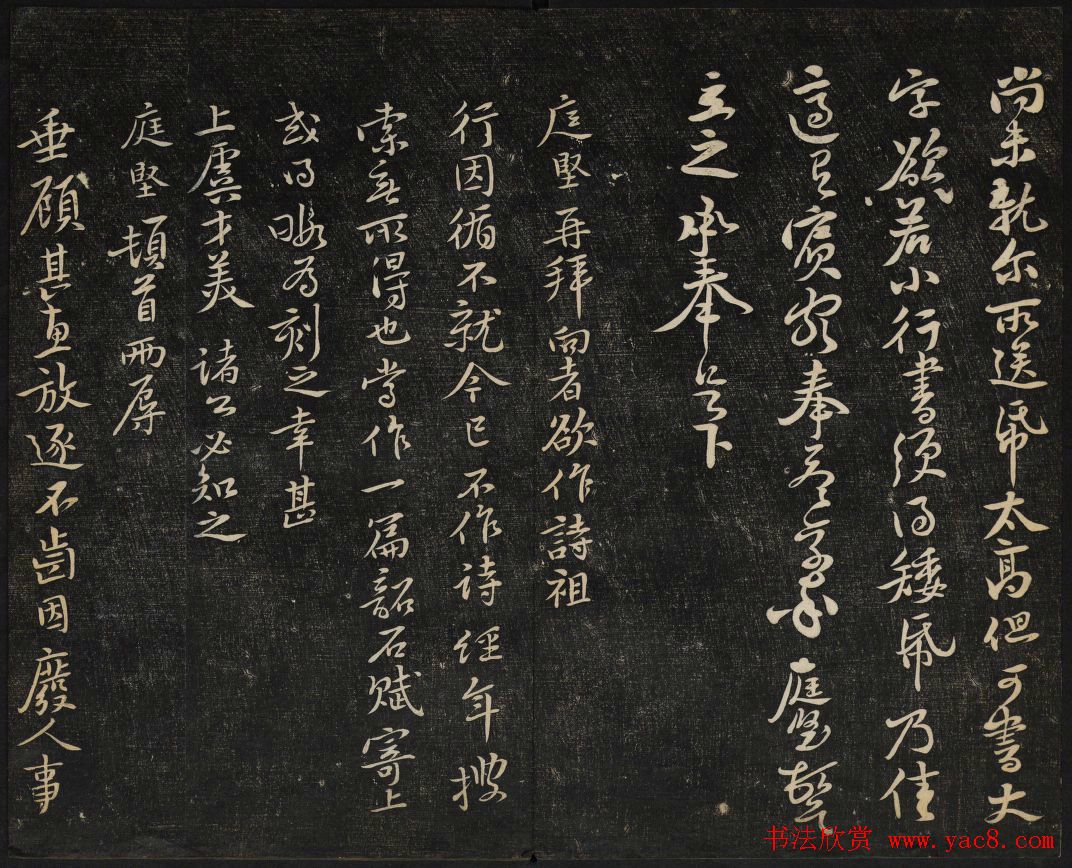 尚未就尔所送帋太高但可書大
字欲若小行書須得矮帋乃佳
適有賓客奉答草草 庭堅頓首
立之承奉足下
庭堅再拜向者欲作詩祖
行因循不就今已不作詩經年搜
索無所得也嘗作一篇韶石賦寄上
或得暇為刻之幸甚
上虞才美 諸公必知之
庭堅頓首兩辱
垂顧甚惠放逐不齒因廢人事
书法欣赏 www.yac8.com